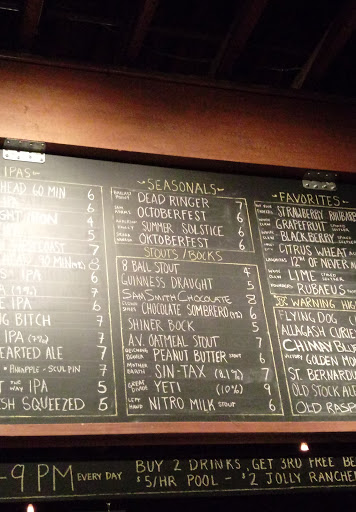 IPAS
HEAD 60 MIN 6
IPA 6
6
4
7
COAST 7
90 MIN 8
IPA 6
(9%) 7
IPA 6
BITCH 7
IPA (7%) 7
EARTED ALE 7
• PINEAPPLE • SCULPIN 7
THE WAY IPA 5
SH SQUEEZED 5
SEASONALS
DEAD RINGER 7
SAM ADAMS OCTOBERFEST 6
SUMMER SOLSTICE 6
OKTOBERFEST 6
STOUTS/BOCKS
8 BALL STOUT 4
GUINNESS DRAUGHT 5
SAM SMITH CHOCOLATE 8
CHOCOLATE SOMBRERO (9%) 6
SHINER BOCK 5
A.V. OATMEAL STOUT 7
BELCHING BEAVER PEANUT BUTTER STOUT 6
MOTHER EARTH SIN-TAX (8.1%) 7
GREAT DIVIDE YETI (10%) 9
LEFT HAND NITRO MILK STOUT 6
FAVORITES
STRAWBERRY RHUBARB
GRAPEFRUIT
BLACKBERRY
CITRUS WHEAT
LAGUNITAS 12TH OF NEVER
LIME
RUBAEUS
WARNING HIG
FLYING DOG
ALLAGASH CURIEU
CHIMAY BLUE
VICTORY GOLDEN MON
ST. BERNARDU
OLD STOCK ALE
OLD RASP
-9 PM EVERY DAY
BUY 2 DRINKS, GET 3RD FREE BE
$5/HR POOL - $2 JOLLY RANCHER